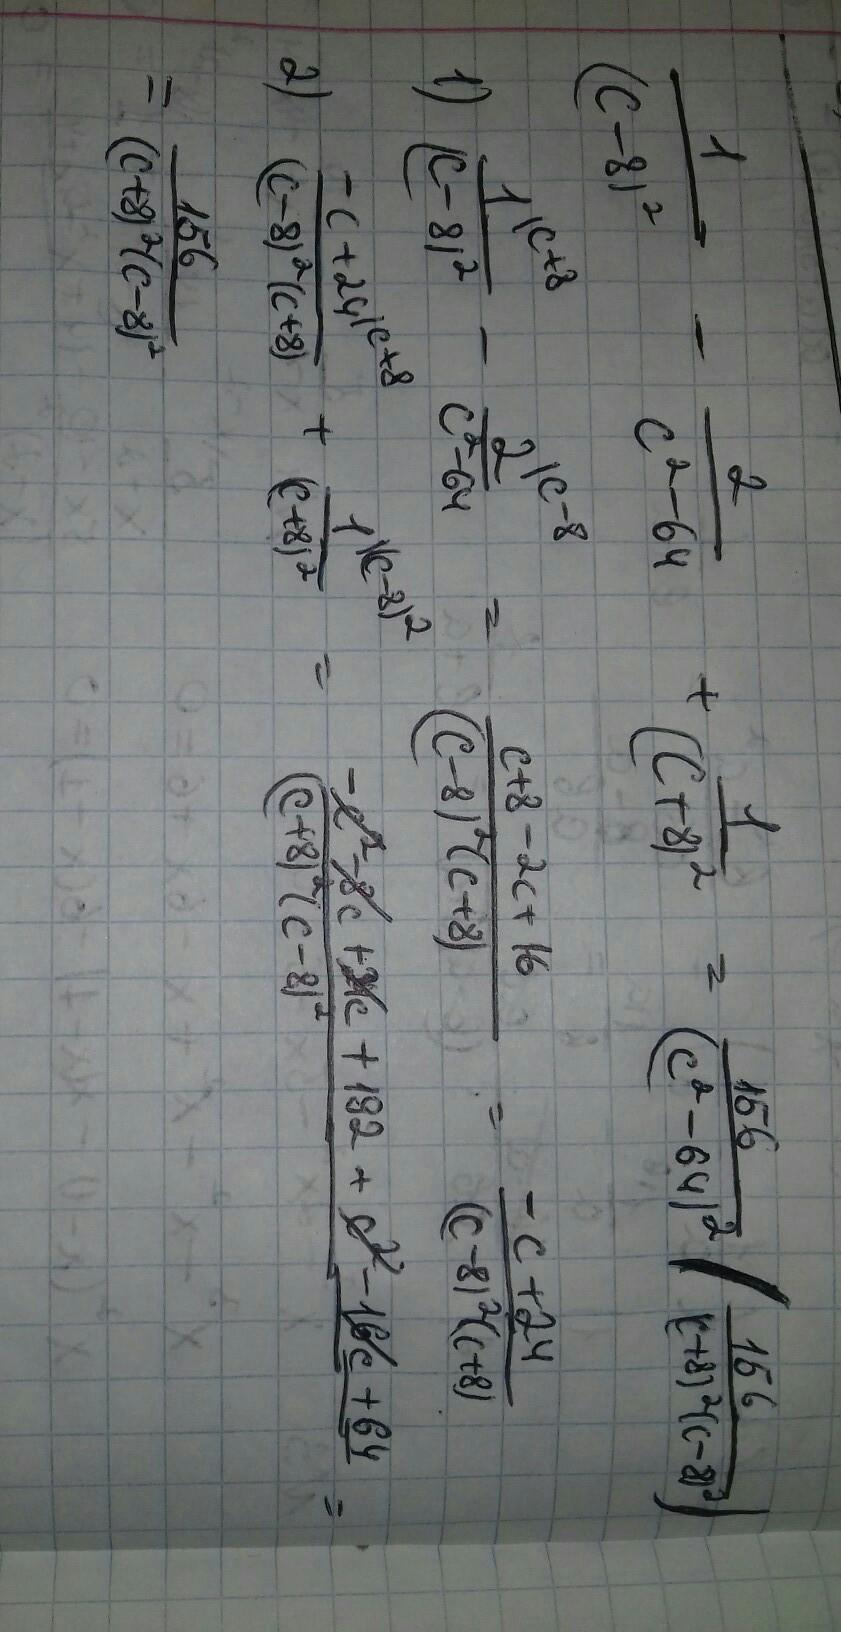 1/(c-8)² - 2/(c²-64) + 1/(c+8)² = 156/(c²-64)² / 156/((c+8)²(c-8)²)
1) 1\c+8/(c-8)² - 2\c-8/(c²-64) = (c+8-2c+16)/((c-8)²(c+8)) = (-c+24)/((c-8)²(c+8))
2) (-c+24\c+8)/((c-8)²(c+8)) + 1\(c-8)²/(c+8)² = (-c²-8c+24c+192+c²-16c+64)/((c+8)²(c-8)²) =
= 156/((c+8)²(c-8)²)